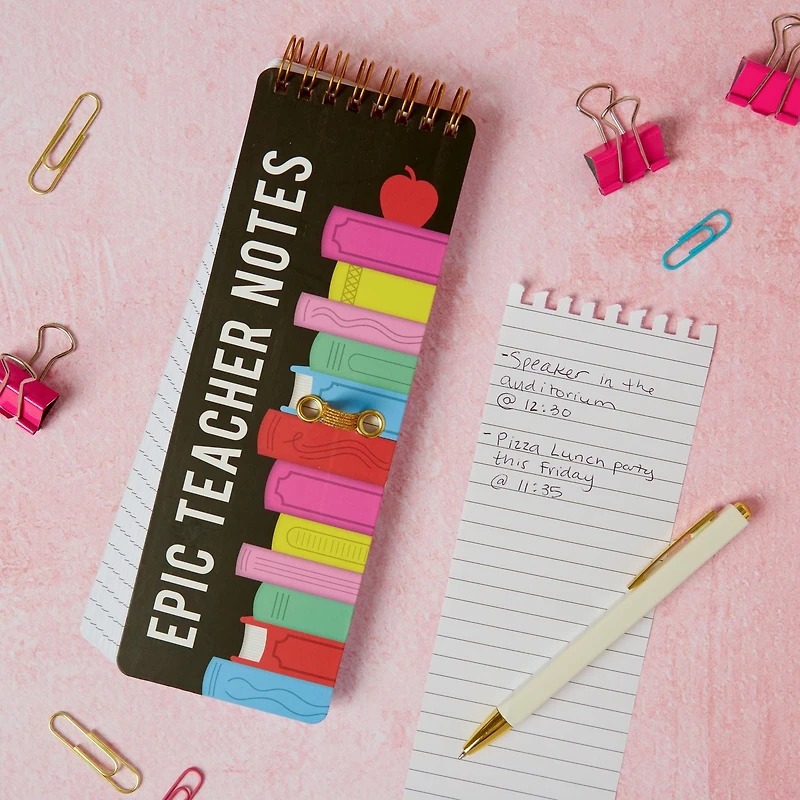 EPIC TEACHER NOTES
-Speaker in the
auditorium
@ 12:30
-Pizza Lunch party
this Friday
@ 11:35